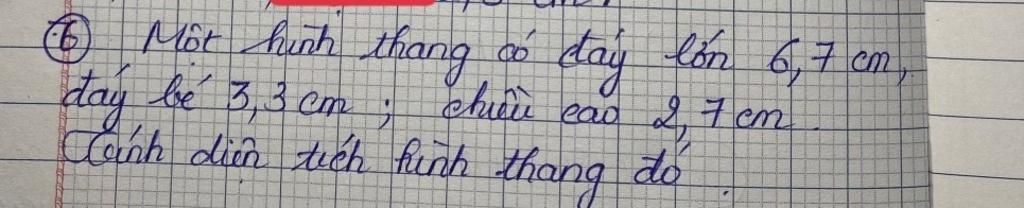 ⑥ Một hình thang có đáy lớn 6,7 cm,
đáy bé 3,3 cm ; chiều cao 2,7 cm.
Tính diện tích hình thang đó.